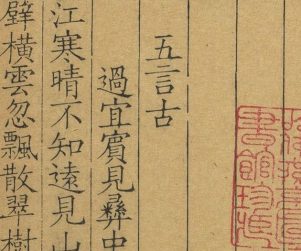 五言古
過宜賓見彝中
江寒晴不知遠見山
壁橫雲忽飄散翠樹